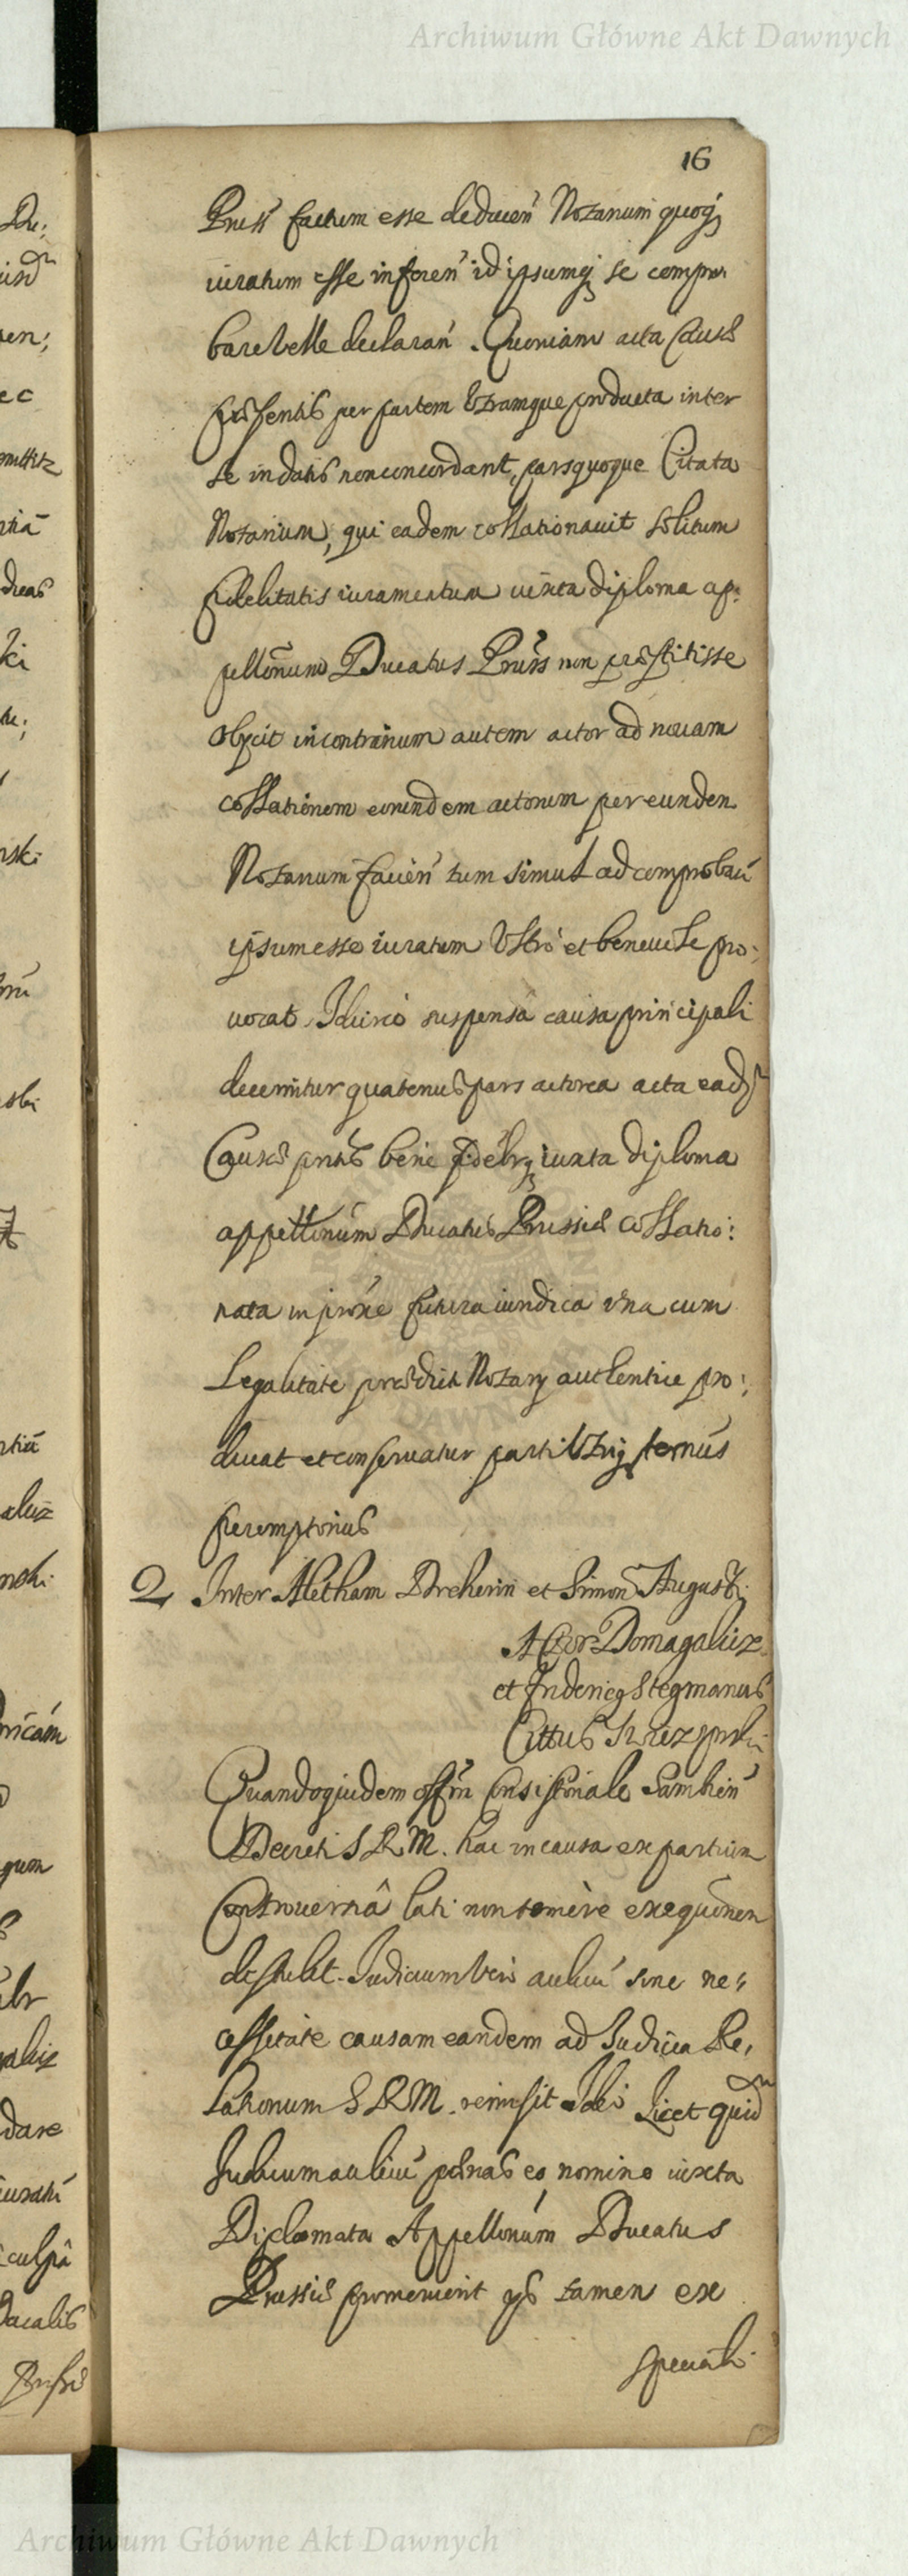 Archiwum Główne Akt Dawnych
16
Pruss factum esse deducen Notarium quoq;
iuratum esse inferen id ipsumq; se compro
bare velle declaran. Quoniam acta Causæ
præsentis per partem Utramque producta inter
se in datis non concordant, pars quoque Citata
Notarium, qui eadem collationauit solitum
fidelitatis iuramentum iuxta diploma ap:
pellonum Ducatus Pruss non præstitisse
obijcit in contrarium autem actor ad nouam
collationem eorundem actorum per eunden
Notarium facien tum simul ad comproban
ipsum esse iuratum Ultro et beneuole pro:
uocat. Idcirco suspensa causa principali
decernitur quatenus pars actorea acta ead
Causæ pntis bene fidelrq; iuxta diploma
appellonum Ducatus Prussiæ collatio:
nata in proxe futura iuridica vna cum
Legalitate prædicti Notarij authentice pro:
ducat et conseruatur parti Utriq; ternus
peremptorius
2 Inter Aletham Dreherin et Simon August:
Actor Domagalicz
et Fridericq Stegmanus
Cittus
Quandoquidem offm Consistoriale Sambien
Decreti S R M. hac in causa ex partium
Controuersiâ lati non temère exequonen
distulit. Iudicium vero aulicu sine ne:
cessitate causam eandem ad Iudicia Re:
lationum S R M. remisit Ideo Licet quid
Iudicium aulicu pœnas eo nomine iuxta
Diplomata Appellonum Ducatus
Prussiæ promeruerit ijs tamen ex
speciali
Archiwum Główne Akt Dawnych